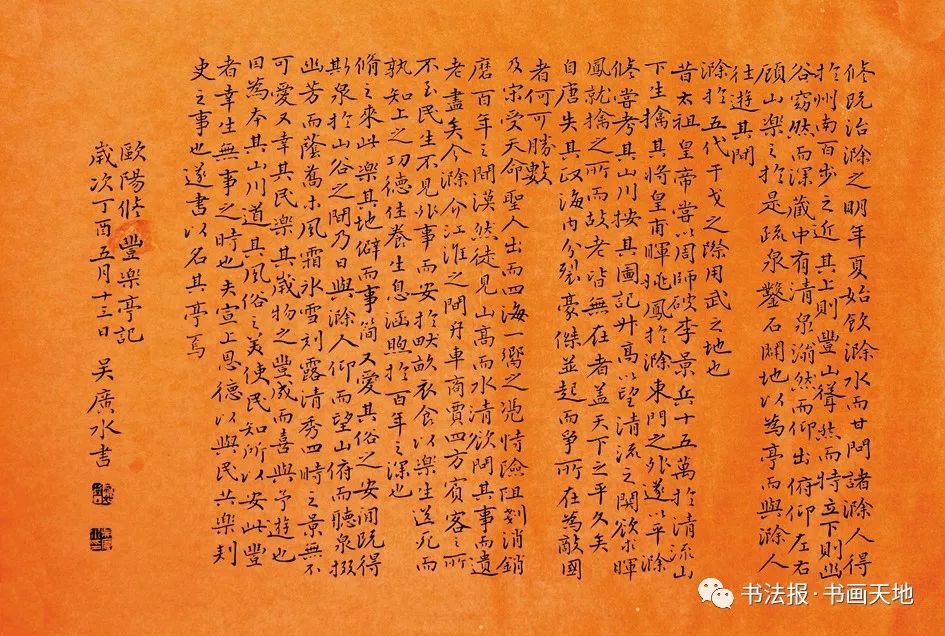 修既治滁之明年夏始飲滁水而甘問諸滁人得
於州南百步之近其上則豐山聳然而特立下則幽
谷窈然而深藏中有清泉滃然而仰出俯仰左右
顧山樂之於是疏泉鑿石闢地以為亭而與滁人
往遊其間
滁於五代干戈之際用武之地也
昔太祖皇帝嘗以周師破李景兵十五萬於清流山
下生擒其將皇甫暉姚鳳於滁東門之外遂以平滁
修嘗考其山川按其圖記升高以望清流之關欲求暉
鳳就擒之所而故老皆無在者蓋天下之平久矣
自唐失其政海內分裂豪傑並起而爭所在為敵國
者何可勝數
及宋受天命聖人出而四海一嚮之憑恃險阻剗消銷
磨百年之間漠然徒見山高而水清欲問其事而遺
老盡矣今滁介江淮之間舟車商賈四方賓客之所
不至民生不見外事而安於畎畝衣食以樂生送死而
孰知上之功德休養生息涵煦於百年之深也
脩之來此樂其地僻而事简又愛其俗之安閒既得
斯泉於山谷之間乃日與滁人仰而望山俯而聽泉掇
幽芳而蔭喬木風霜冰雪刻露清秀四時之景無不
可愛又幸其民樂其歲物之豐成而喜與予遊也
因為本其山川道其風俗之美使民知所以安此豐
者幸生無事之時也夫宣上恩德以與民共樂刺
史之事也遂書以名其亭焉
歐陽修豐樂亭記
歲次丁酉五月十三日 吴廣水書
书法报·书画天地